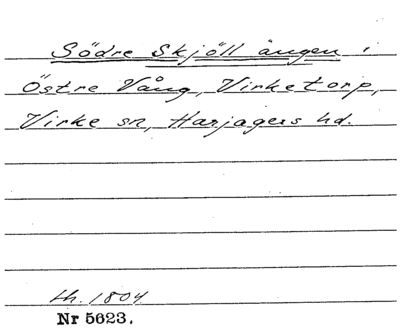 Södre Skjöll ängen i
Östre Vång, Virketorp,
Virke sn, Harjagers hd.
lh. 1804
Nr 5623.